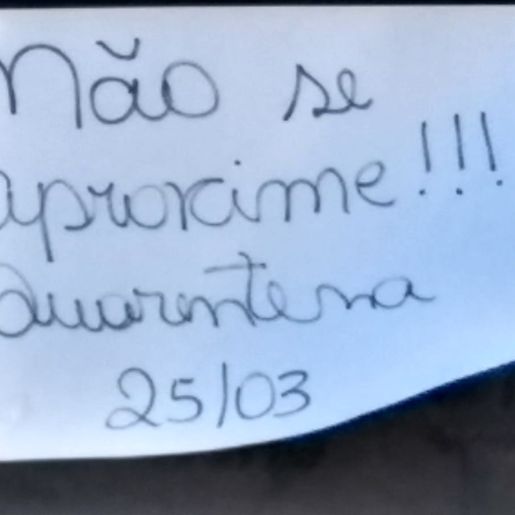 Não se
aproxime!!!
Quarentena
25/03